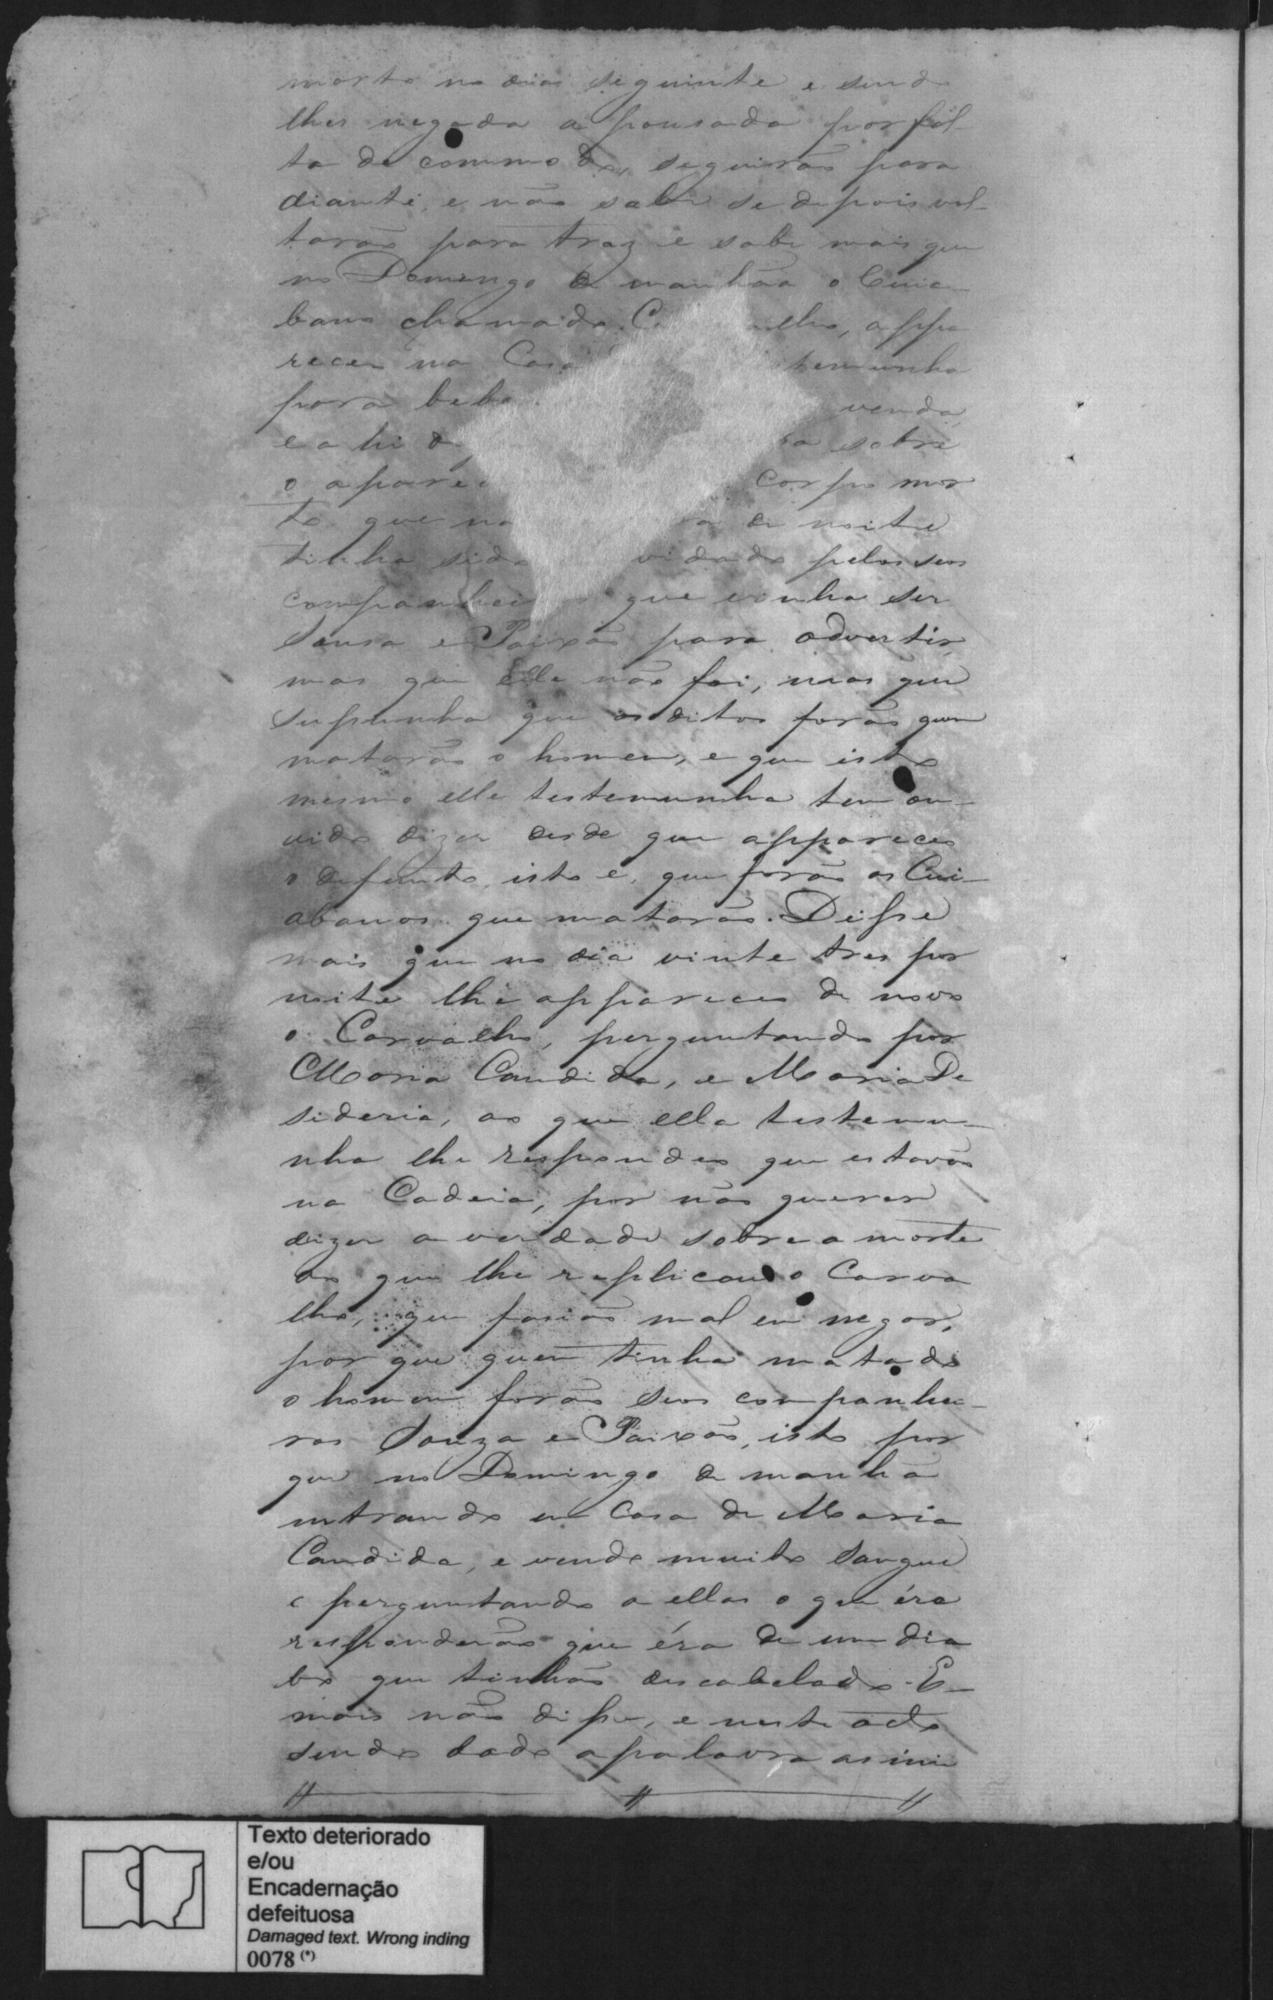 morto no dia seguinte e sendo
lhes negada a pousada por fal-
ta de commodo, seguirão para
diante, e não sabe se depois vol-
tarão para traz e sabe mais que
no Domingo de manhãa o Cuia-
bano chamado Carvalho, appa
receu na Casa temunha
para bebe venda,
e ahi sobre
o aparec corpo mor
to que na de noite
tinha sido vidado pelos seus
companheiros que vinha ser
Sousa e Paixão para advertir
mas que elle não foi, mas que
supunha que os ditos forão quem
matarão o homem, e que isto
mesmo elle testemunha tem ou-
vido dizer desde que appareceo
o defunto, isto é, que forão os Cui-
abanos que matarão. Disse
mais que no dia vinte tres por
noite lhe appareceu de novo
o Carvalho, perguntando por
Maria Candida, e Maria De
sideria, ao que ella testemu-
nha lhe respondeo que estavão
na Cadeia, por não querer
dizer a verdade sobre a morte
ao que lhe replicou o Carva
lho, que fasião mal em negar,
por que quem tinha matado
o homem forão seus companhei-
ros Souza e Paixão, isto por
que no Domingo de manhã
entrando em Casa de Maria
Candida, e vendo muito sangue
e perguntando a ellas o que éra
responderão que éra de um dia
bo que tinhão descabelado. E-
mais não disse, e neste acto
sendo dado a palavra
Texto deteriorado
e/ou
Encadernação
defeituosa
Damaged text. Wrong inding
0078 (*)